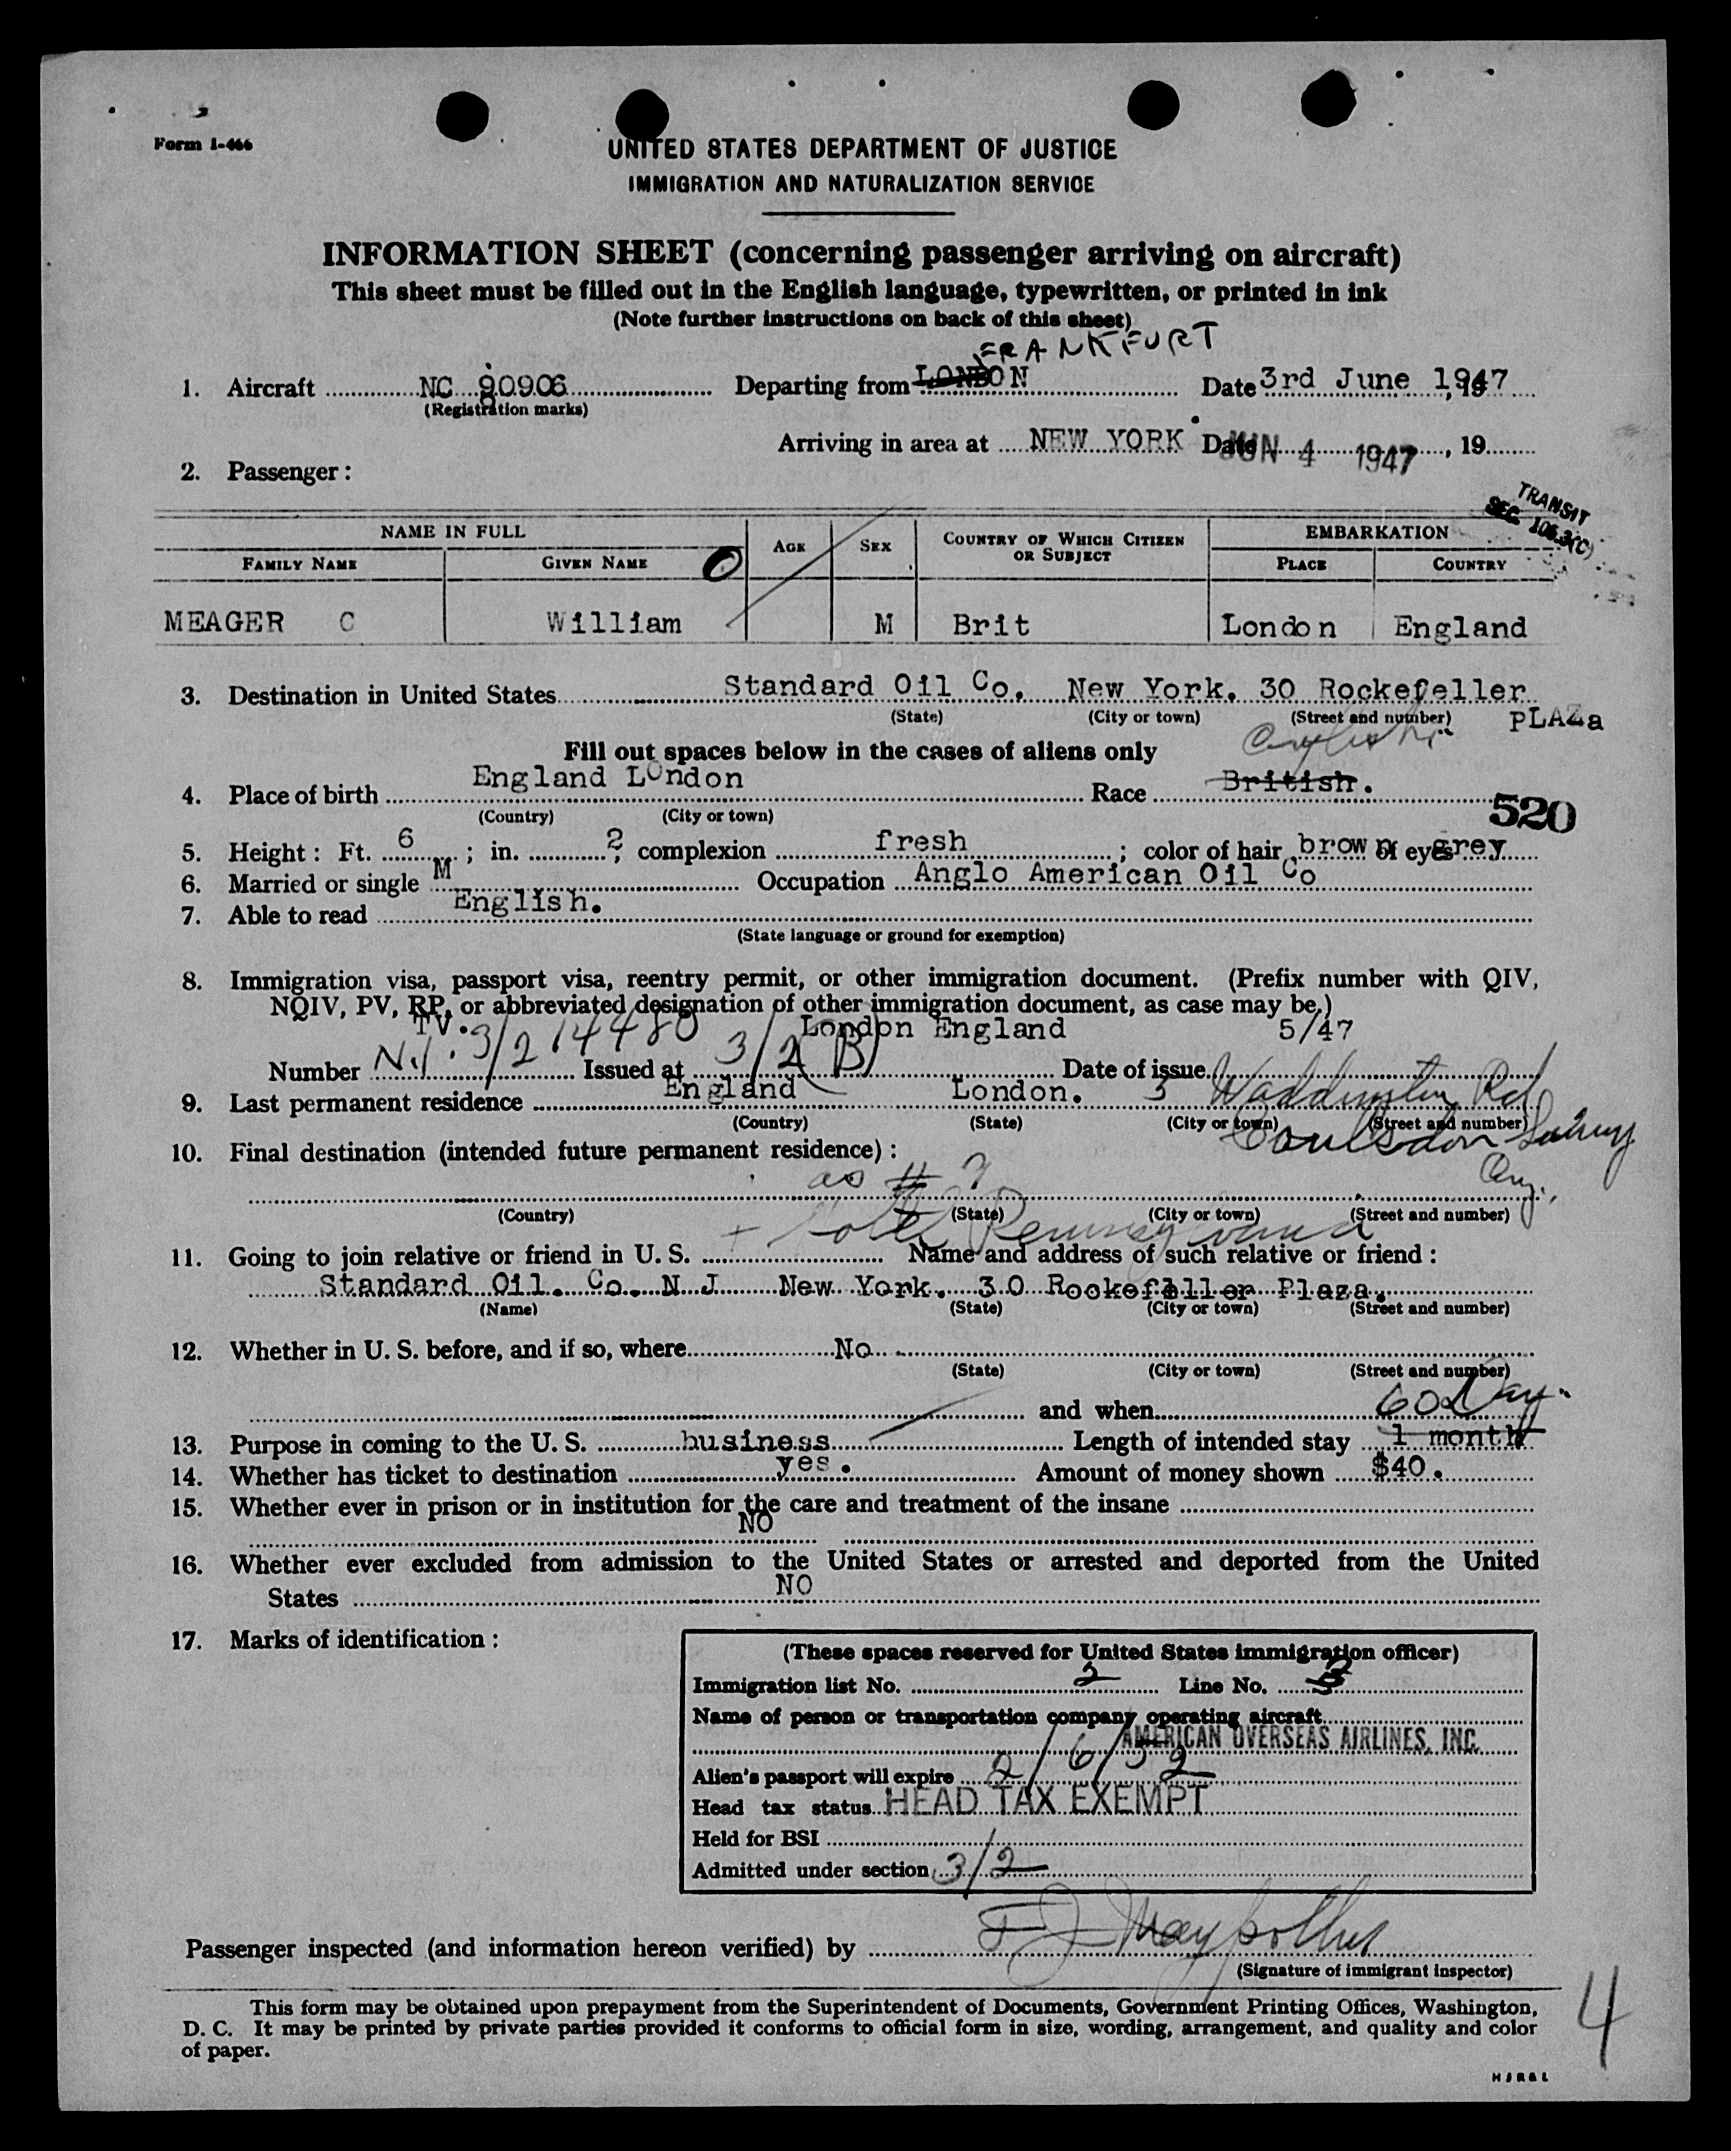 Form I-466
UNITED STATES DEPARTMENT OF JUSTICE
IMMIGRATION AND NATURALIZATION SERVICE
INFORMATION SHEET (concerning passenger arriving on aircraft)
This sheet must be filled out in the English language, typewritten, or printed in ink
(Note further instructions on back of this sheet)
FRANKFURT
1. Aircraft NC 90906 Departing from LONDON Date 3rd June 1947, 19
(Registration marks)
Arriving in area at NEW YORK Date JUN 4 1947, 19
2. Passenger:
TRANSIT
SEC. 106.3(C)
NAME IN FULL AGE SEX COUNTRY OF WHICH CITIZEN OR SUBJECT EMBARKATION
FAMILY NAME GIVEN NAME PLACE COUNTRY
MEAGER C William M Brit London England
3. Destination in United States Standard Oil Co. New York. 30 Rockefeller
(State) (City or town) (Street and number) PLAZa
Fill out spaces below in the cases of aliens only
4. Place of birth England London Race British.
(Country) (City or town)
520
5. Height: Ft. 6; in. 2; complexion fresh; color of hair brown of eyes grey
6. Married or single M Occupation Anglo American Oil Co
7. Able to read English.
(State language or ground for exemption)
8. Immigration visa, passport visa, reentry permit, or other immigration document. (Prefix number with QIV,
NQIV, PV, RP, or abbreviated designation of other immigration document, as case may be.)
TV. London England 5/47
Number N.I. 3/2 14480 Issued at 3/2 (B) Date of issue
9. Last permanent residence England London. 3 Waddington Rd
(Country) (State) (City or town) (Street and number)
Coulsdon
10. Final destination (intended future permanent residence):
as # 9
(Country) (State) (City or town) (Street and number)
Hotel Pennsylvania
11. Going to join relative or friend in U. S. Name and address of such relative or friend:
Standard Oil. Co. N J New York. 30 Rockefeller Plaza.
(Name) (State) (City or town) (Street and number)
12. Whether in U. S. before, and if so, where No.
(State) (City or town) (Street and number)
and when 60 Days
13. Purpose in coming to the U. S. business Length of intended stay 1 month
14. Whether has ticket to destination yes. Amount of money shown $40.
15. Whether ever in prison or in institution for the care and treatment of the insane
NO
16. Whether ever excluded from admission to the United States or arrested and deported from the United
States NO
17. Marks of identification:
(These spaces reserved for United States immigration officer)
Immigration list No. 2 Line No. 3
Name of person or transportation company operating aircraft
AMERICAN OVERSEAS AIRLINES, INC.
Alien's passport will expire 2/6/52
Head tax status HEAD TAX EXEMPT
Held for BSI
Admitted under section 3/2
Passenger inspected (and information hereon verified) by
(Signature of immigrant inspector)
This form may be obtained upon prepayment from the Superintendent of Documents, Government Printing Offices, Washington,
D. C. It may be printed by private parties provided it conforms to official form in size, wording, arrangement, and quality and color
of paper.
4